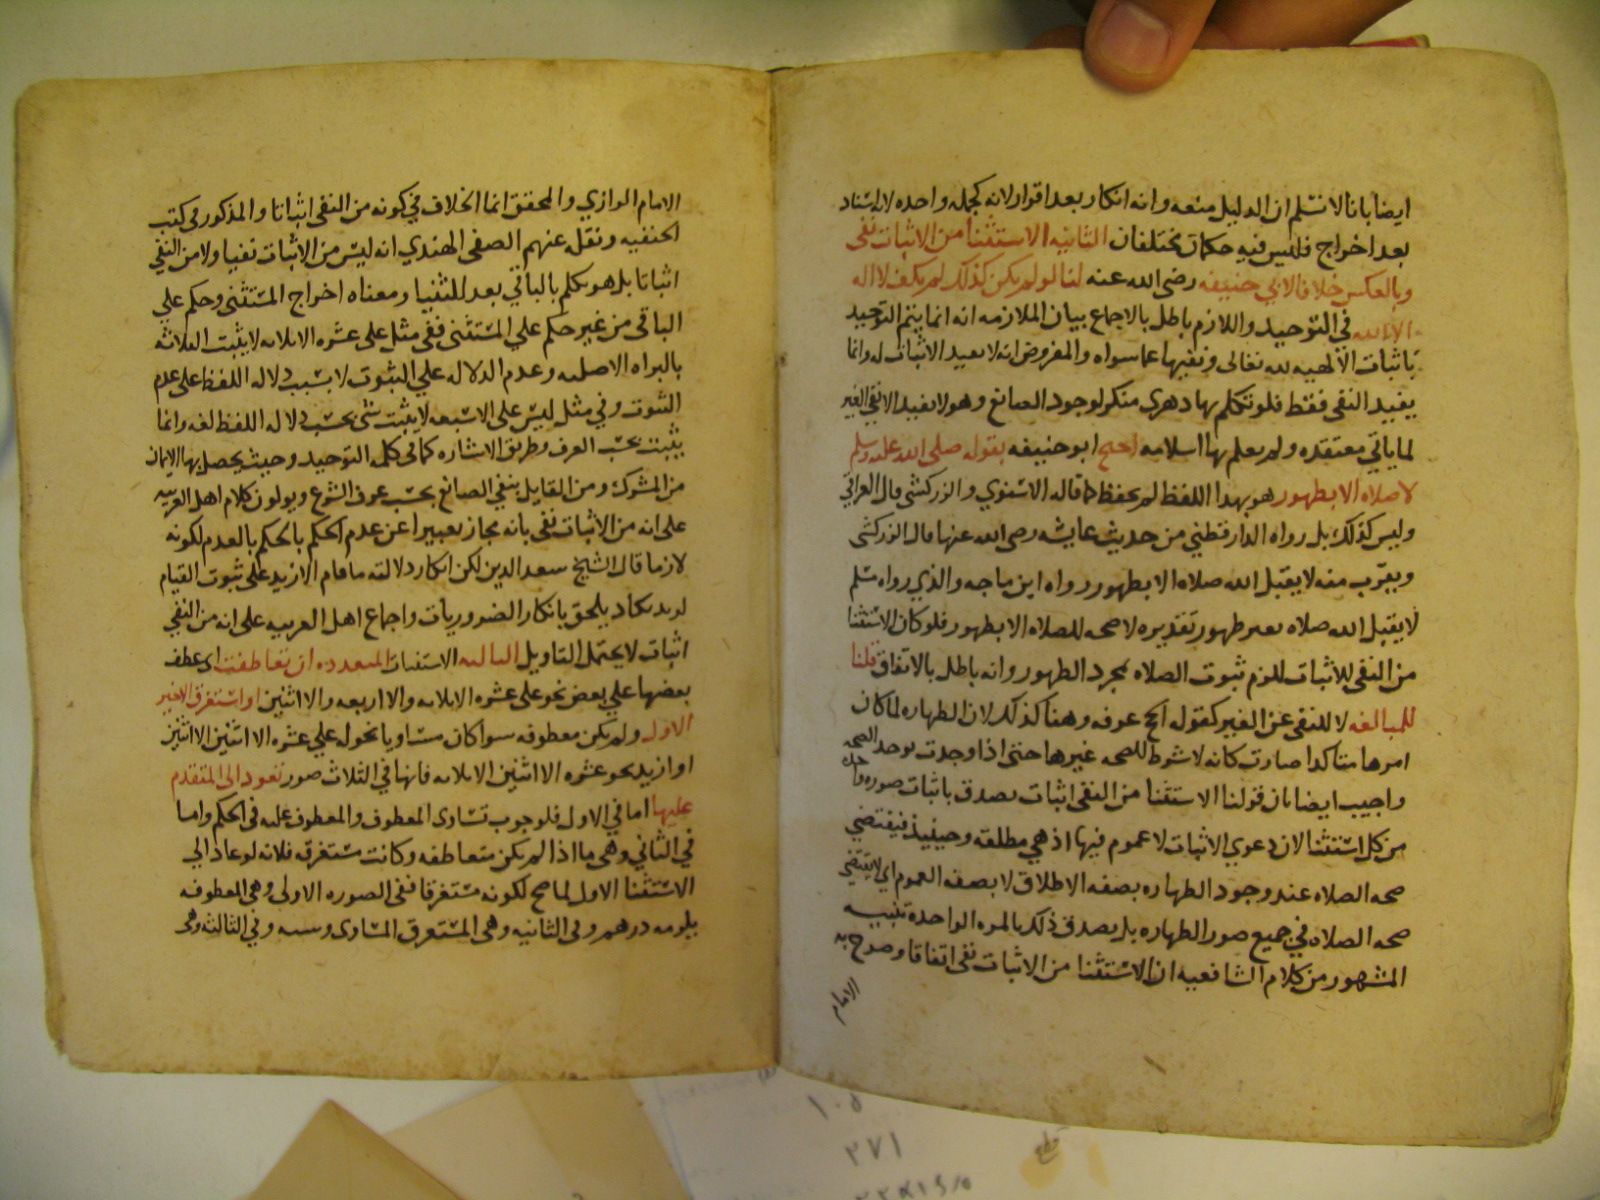 ايضا بانا لا نسلم ان الدليل منعه وانه انكار بعد اقرار لانه كجمله واحده لانه اسناد
بعد اخراج فليس فيه حكمان مختلفان الثانيه الاستثنا من الاثبات نفى
وبالعكس خلافا لابي حنيفه رضى الله عنه لنا لو لم يكن كذلك لم يكف لا اله
الا الله في التوحيد واللازم باطل بالاجماع بيان الملازمه انه انما يتم التوحيد
باثبات الالهيه لله تعالى ونفيها عما سواه والمفروض انه لا يفيد الاثبات له وانما
يفيد النفى فقط فلو تكلم بها دهرى منكر لوجود الصانع وهو لا يفيد الا نفى الغير
لما ياتي معتقده ولم يعلم بها اسلامه احتج ابو حنيفه بقوله صلى الله عليه وسلم
لا صلاه الا بطهور هو بهدا اللفظ لم يحفظ كما قاله الاسنوي والزركشى قال العراقي
وليس كذلك بل رواه الدارقطني من حديث عايشه رصى الله عنها قال الزركشى
ويقرب منه لا يقبل الله صلاه الا بطهور رواه ابن ماجه والذي رواه مسلم
لا يقبل الله صلاه بغير طهور تقديره لا صحه للصلاه الا بطهور فلو كان الاستثنا
من النفى للاثبات للزم ثبوت الصلاه بمجرد الطهور وانه باطل بالاتفاق قلنا
للمبالغه لا للنفى عن الغير كقوله الحج عرفه وهنا كذلك لان الطهاره لما كان
امرها متاكدا صارت كانه لا شرط للصحه غيرها حتى اذا وجدت توجد الصحه
واجيب ايضا بان قولنا الاستثنا من النفى اثبات يصدق باثبات صوره واحده
من كل استثنا لان دعوي الاثبات لا عموم فيها اذ هي مطلقه وحينيذ فيقتضي
صحه الصلاه عند وجود الطهاره بصفه الاطلاق لا بصفه العموم اي لا يقتضي
صحه الصلاه في جميع صور الطهاره بل يصدق ذلك بالمره الواحدة تنبيه
المشهور من كلام الشافعيه ان الاستثنا من الاثبات نفى اتفاقا وصرح به
الامام
الامام الرازي والمحقق انما الخلاف في كونه من النفى اثباتا والمذكور في كتب
الحنفيه ونقل عنهم الصفى الهندي انه ليس من الاثبات نفيا ولا من النفي
اثباتا بل هو تكلم بالباقي بعد الثنيا ومعناه اخراج المستثنى وحكم علي
الباقى من غير حكم علي المستثنى ففى مثل على عشره الا ثلاثه لا يثبت الثلاثه
بالبراه الاصليه وعدم الدلاله علي الثبوت لا بسبب دلاله اللفظ على عدم
الثبوت وفي مثل ليس على الا سبعه لا يثبت شى بحسب دلاله اللفظ لغه وانما
يثبت بحسب العرف وطريق الاشاره كما في كلمه التوحيد وحيث يحصل بها الايمان
من المشرك ومن القايل بنفي الصانع بحسب عرف الشرع ويولون كلام اهل العربيه
على انه من الاثبات نفى بانه مجاز تعبيرا عن عدم الحكم بالحكم بالعدم لكونه
لازما قال الشيخ سعد الدين لكن انكار دلالة ما قام الا زيد على ثبوت القيام
لزيد يكاد يلحق بانكار الضروريات واجماع اهل العربيه على انه من النفي
اثبات لا يحتمل التاويل الثالثه الاستثنات المتعدده ان تعاطفت اى عطف
بعضها علي بعض نحو على عشره الا ثلاثه والا اربعه والا اثنين او استغرق الاخير
الاول ولم يكن معطوفه سوا كان مساويا نحو له علي عشره الا اثنين الا اثنين
او ازيد نحو عشره الا اثنين الا ثلاثه فانها في الثلاث صور تعود الى المتقدم
عليها اما في الاول فلوجوب تساوى المعطوف والمعطوف عليه فى الحكم واما
في الثاني وهى ما اذا لم يكن متعاطفه وكانت مستغرقه فلانه لو عاد الي
الاستثنا الاول لما صح لكونه مستغرقا ففى الصوره الاولى وهى المعطوفه
يلزمه درهم وفى الثانيه وهى المستغرق المساوى وسته وفي الثالثه وهى
١٠٥
٢٧١